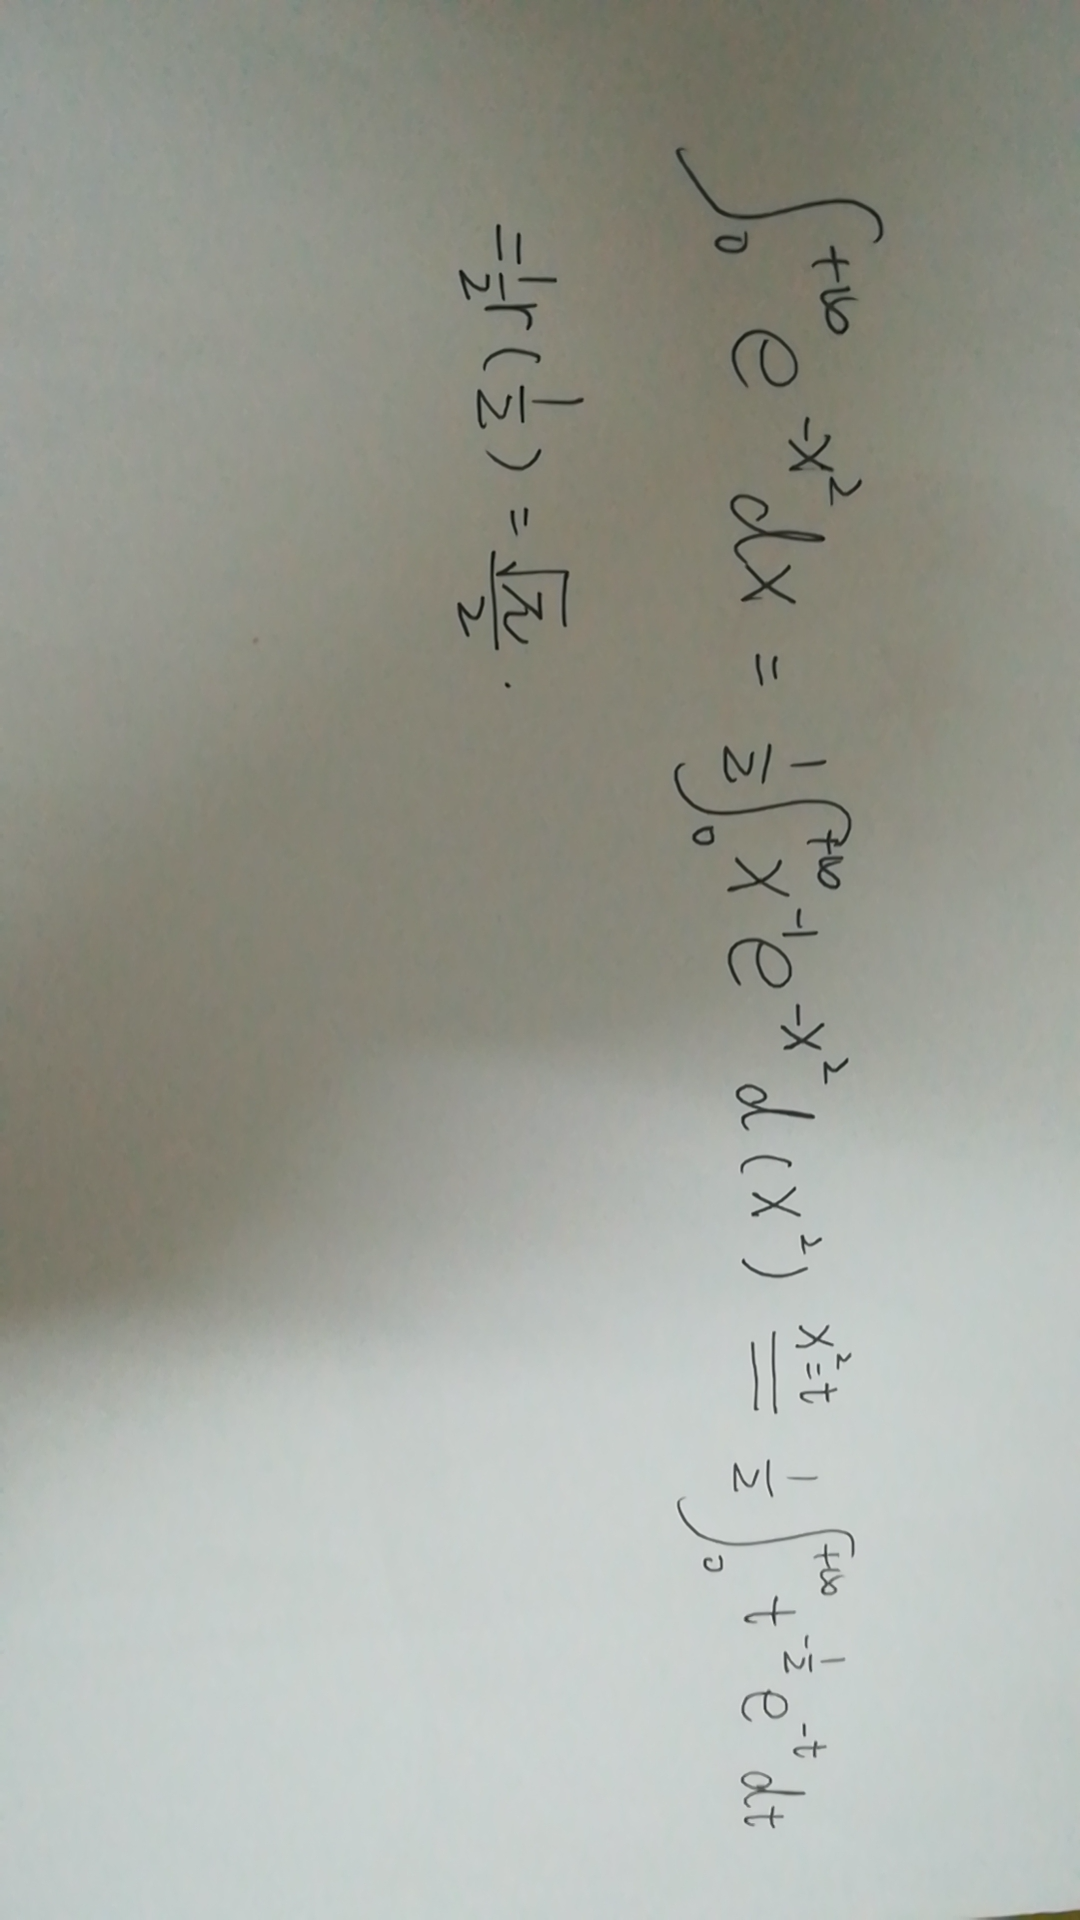 ∫₀^{+∞} e^{-x²} dx = 1/2 ∫₀^{+∞} x^{-1} e^{-x²} d(x²) \overset{x²=t}{=} 1/2 ∫₀^{+∞} t^{-1/2} e^{-t} dt
= 1/2 Γ(1/2) = √π/2.